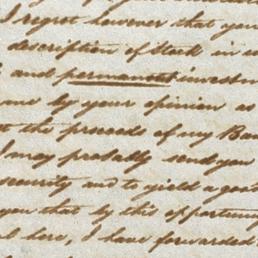 I regret however that you
description of stock in
and permanent investm
me by your opinion as
the proceeds of my Ban
I may probably send you
security and to yield a good
you that by this opportuni
here, I have forwarded